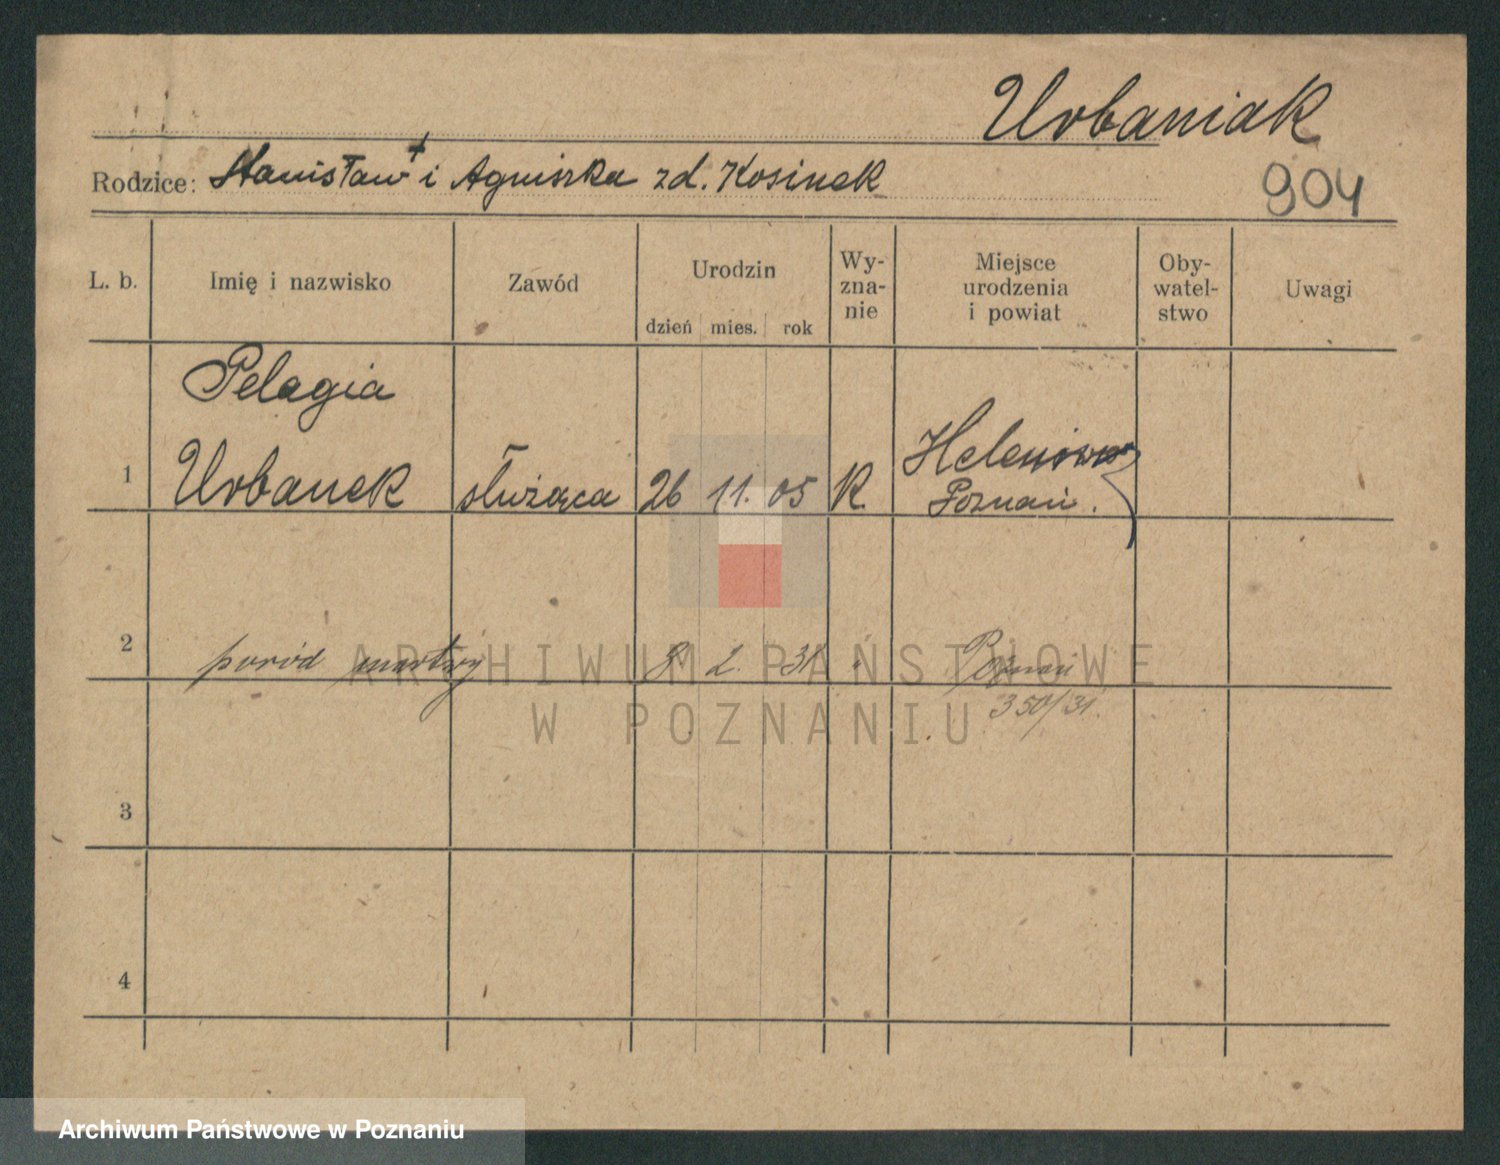 Urbaniak
Rodzice: Stanisław + i Agniszka zd. Kosinek
904
L. b. Imię i nazwisko Zawód Urodzin dzień mies. rok Wy-zna-nie Miejsce urodzenia i powiat Oby-watel-stwo Uwagi
Pelagia
1 Urbanek służąca 26 11. 05 K. Helenowo
Poznań.
2 poród martwy 8 2. 31 " Poznań
350/31.
3
4
ARCHIWUM PAŃSTWOWE
W POZNANIU
Archiwum Państwowe w Poznaniu